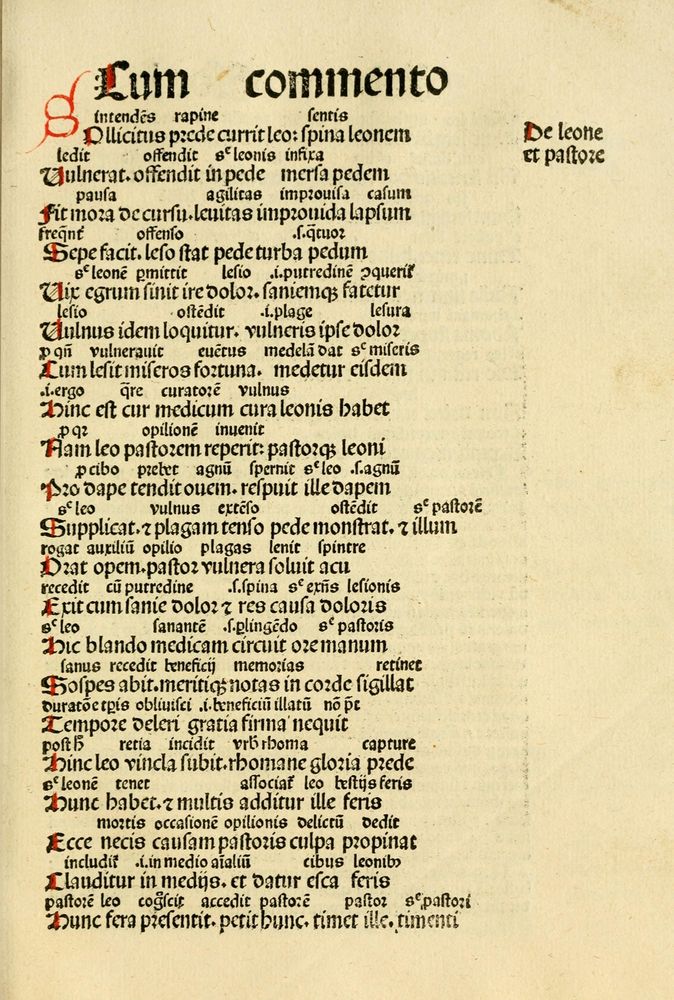 Cum commento
intendēs rapine sentis
SOllicitus prede currit leo: spina leonem
De leone
et pastore
ledit offendit sc̄ leonis infixa
Vulnerat. offendit in pede mersa pedem
pausa agilitas improuisa casum
Fit mora de cursu. leuitas improuida lapsum
freqn̄t offenso .s. q̄tuor
Sepe facit. leso stat pede turba pedum
sc̄ leonē ꝑmittit lesio .i. putredinē ꝯqueriť
Vix egrum sinit ire dolor. saniemqꝫ fatetur
lesio ostēdit .i. plage lesura
Vulnus idem loquitur. vulneris ipse dolor
ꝓ qn̄ vulnerauit euētus medelā dat sc̄ miseris
Cum lesit miseros fortuna. medetur eisdem
.i. ergo q̄re curatorē vulnus
Hinc est cur medicum cura leonis habet
ꝓ qꝛ opilionē inuenit
Nam leo pastorem reperit: pastorqꝫ leoni
ꝓ cibo prebet agnū spernit sc̄ leo .s. agnū
Pro dape tendit ouem. respuit ille dapem
sc̄ leo vulnus extēso ostēdit sc̄ pastorē
Supplicat. ⁊ plagam tenso pede monstrat. ⁊ illum
rogat auxiliū opilio plagas lenit spintre
Orat opem. pastor vulnera soluit acu
recedit cū putredine .s. spina sc̄ exn̄s lesionis
Exit cum sanie dolor ⁊ res causa doloris
sc̄ leo sanantē .s. ꝑlingēdo sc̄ pastoris
Hic blando medicam circuit ore manum
sanus recedit beneficij memorias retinet
Sospes abit. meritiqꝫ notas in corde sigillat
duratōe tꝑis obliuisci .i. beneficiū illatū nō p̄t
Tempore deleri gratia firma nequit
post h̄ retia incidit vrb̄ rhoma capture
Hinc leo vincla subit. rhomane gloria prede
sc̄ leonē tenet associať leo bestijs feris
Hunc habet. ⁊ multis additur ille feris
mortis occasionē opilionis delictū dedit
Ecce necis causam pastoris culpa propinat
includiť .i. in medio aīaliū cibus leonibꝫ
Clauditur in medijs. et datur esca feris
pastorē leo coḡscit accedit pastorē pastor sc̄ pastori
Hunc fera presentit. petit hunc. timet ille. timenti